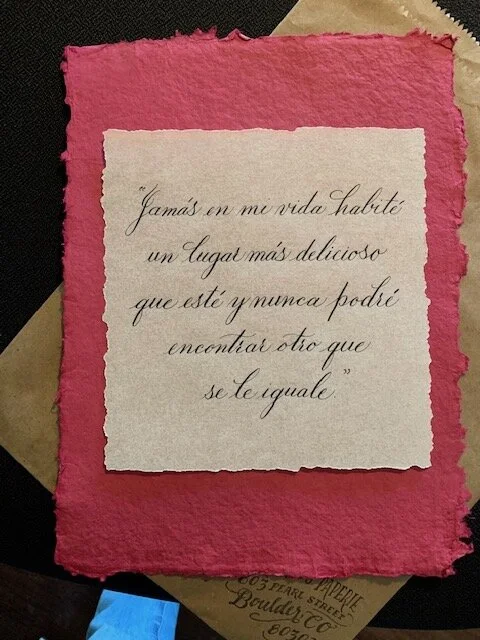 "Jamás en mi vida habité
un lugar más delicioso
que esté y nunca podré
encontrar otro que
se le iguale."
PAPERIE
803 PEARL STREET
Boulder·CO
8030